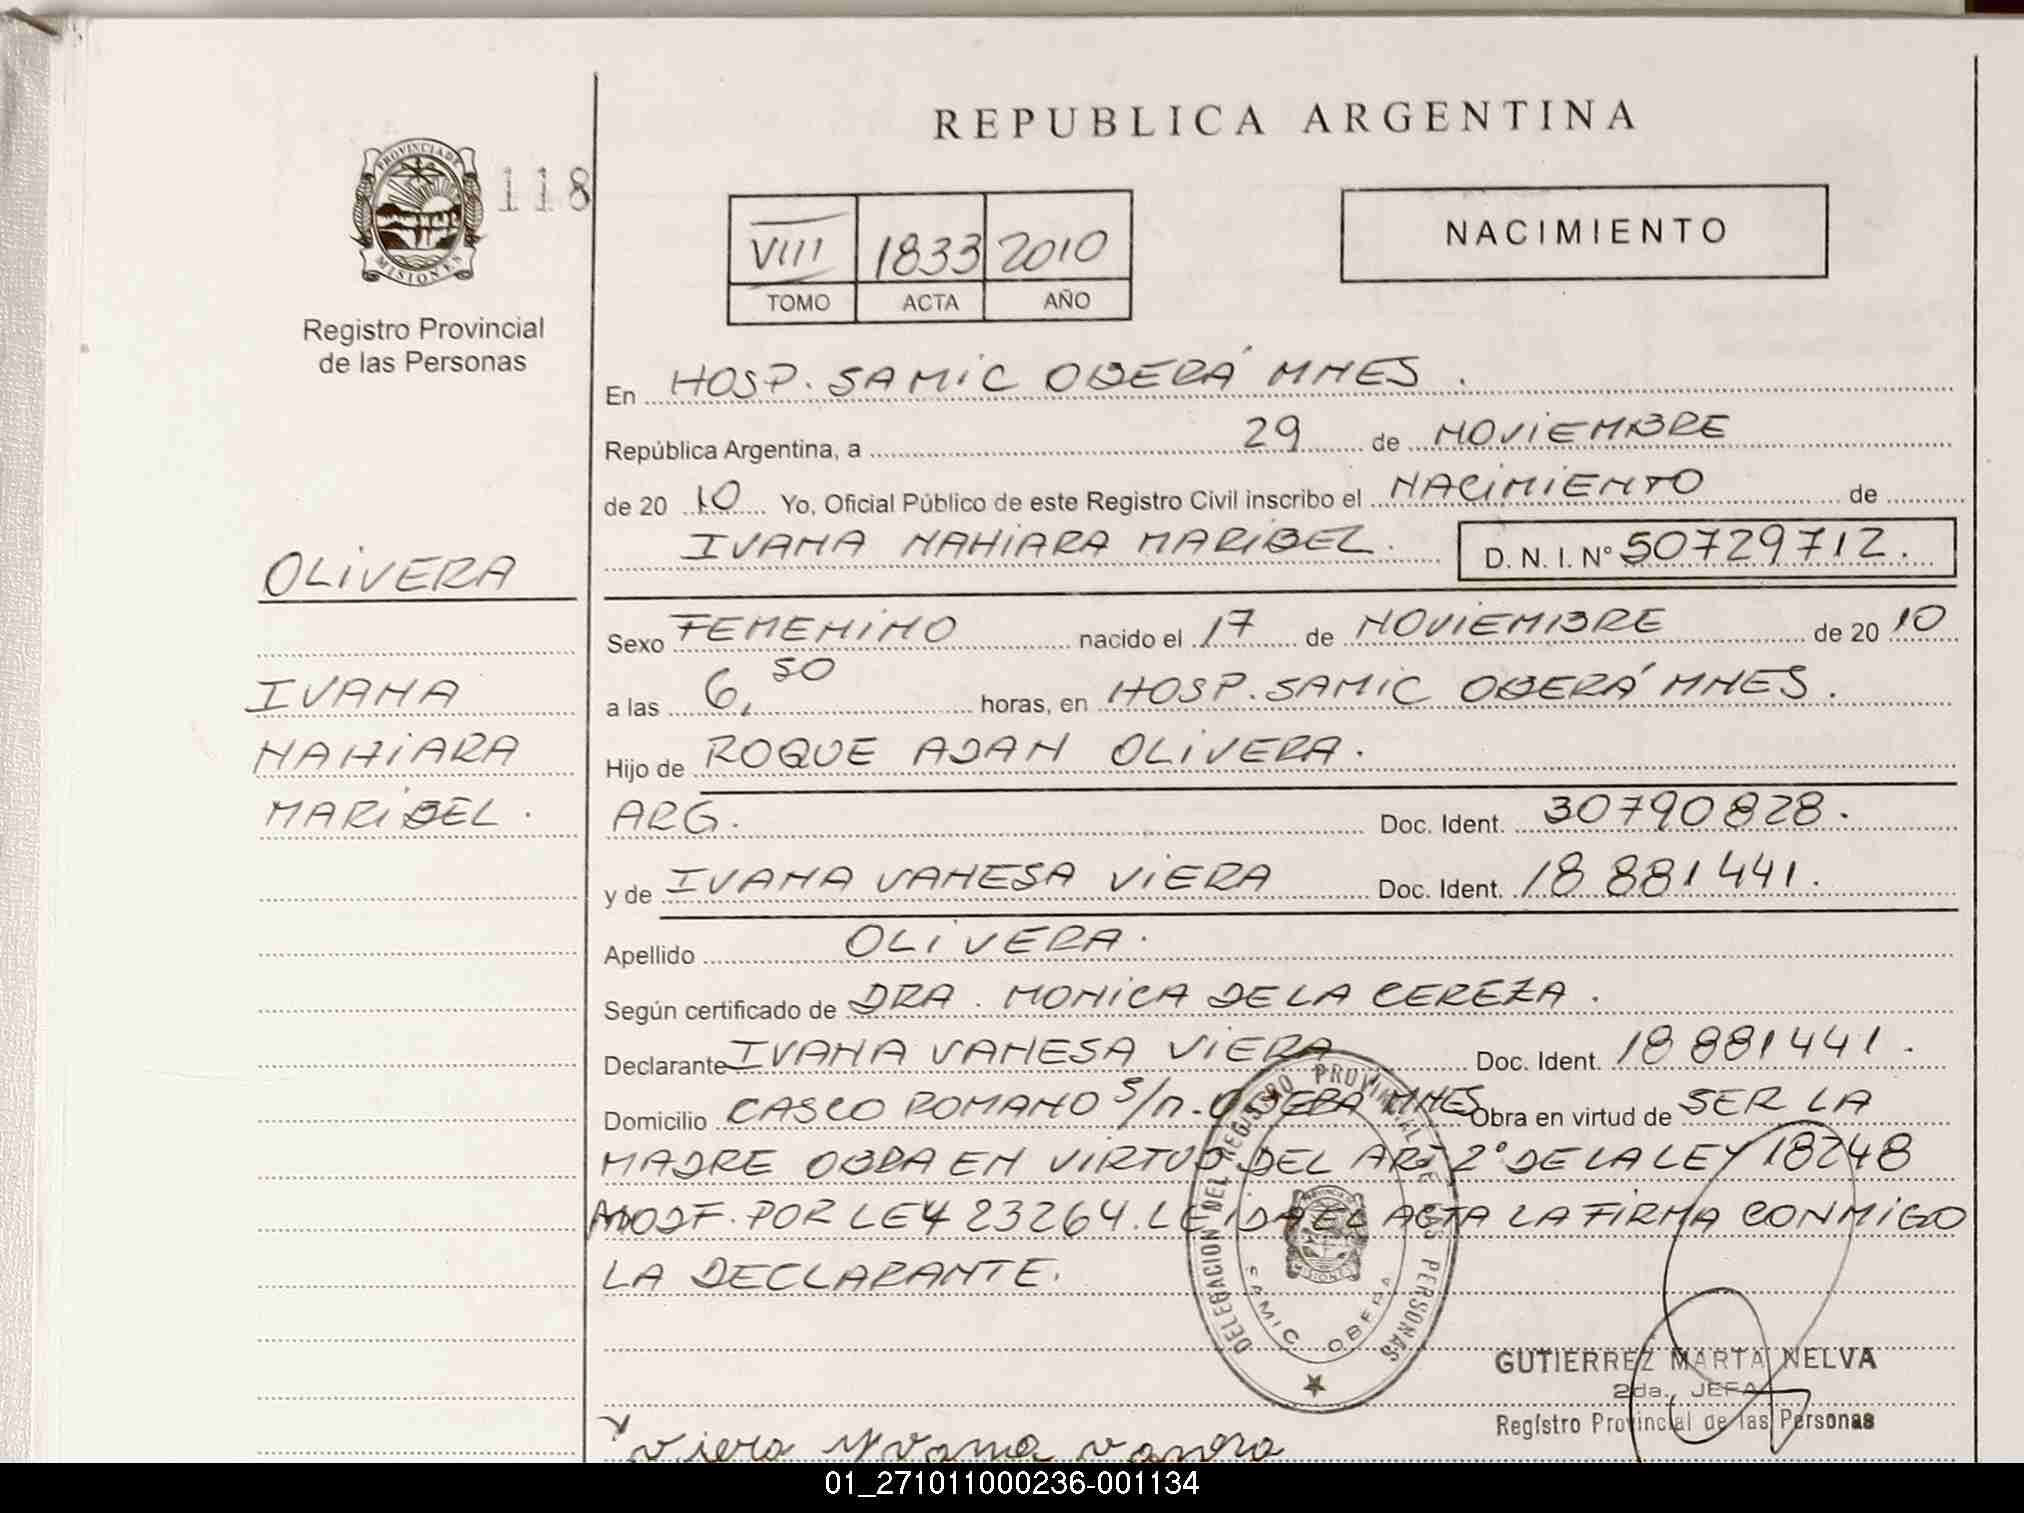 REPUBLICA ARGENTINA
PROVINCIA DE
MISIONES
118
VIII 1833 2010
TOMO ACTA AÑO
NACIMIENTO
Registro Provincial
de las Personas
En HOSP. SAMIC OBERÁ MNES.
República Argentina, a 29 de NOVIEMBRE
de 20 10 Yo, Oficial Público de este Registro Civil inscribo el NACIMIENTO de
IVANA NAHIARA MARIBEL. D. N. I. Nº 50729712.
OLIVERA
IVANA
NAHIARA
MARIBEL.
Sexo FEMENINO nacido el 17 de NOVIEMBRE de 20 10
a las 6,50 horas, en HOSP. SAMIC OBERÁ MNES.
Hijo de ROQUE ADAN OLIVERA.
ARG. Doc. Ident. 30790828.
y de IVANA VANESA VIERA Doc. Ident. 18 881441.
Apellido OLIVERA.
Según certificado de DRA. MONICA DE LA CEREZA.
Declarante IVANA VANESA VIERA Doc. Ident. 18 881441.
Domicilio CASCO ROMANO S/n. OBERA MNES Obra en virtud de SER LA
MADRE OBRA EN VIRTUD DEL ART 2º DE LA LEY 18248
MODF. POR LEY 23264. LEIDA EL ACTA LA FIRMA CONMIGO
LA DECLARANTE.
DELEGACION DEL REGISTRO PROVINCIAL DE LAS PERSONAS
SAMIC OBERA
GUTIERREZ MARTA NELVA
2da. JEFA
Registro Provincial de las Personas
Viera Yvana vanesa
01_271011000236-001134